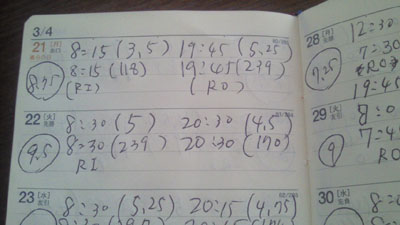 3/4
21 [月] 8=15 (3,5) 19:45 (5,25)
8=15 (118) 19:45 (239)
(RI) (RO)
22 [火] 8:30 (5) 20:30 (4,5)
9,5 8=30 (239) 20:30 (170)
RI
23 [水] 8:30 (5,25) 20:15 (4,75)
28 [月] 12:30
7:30
7,25
19:45
29 [火]
9 7=45
RO
30 [水]